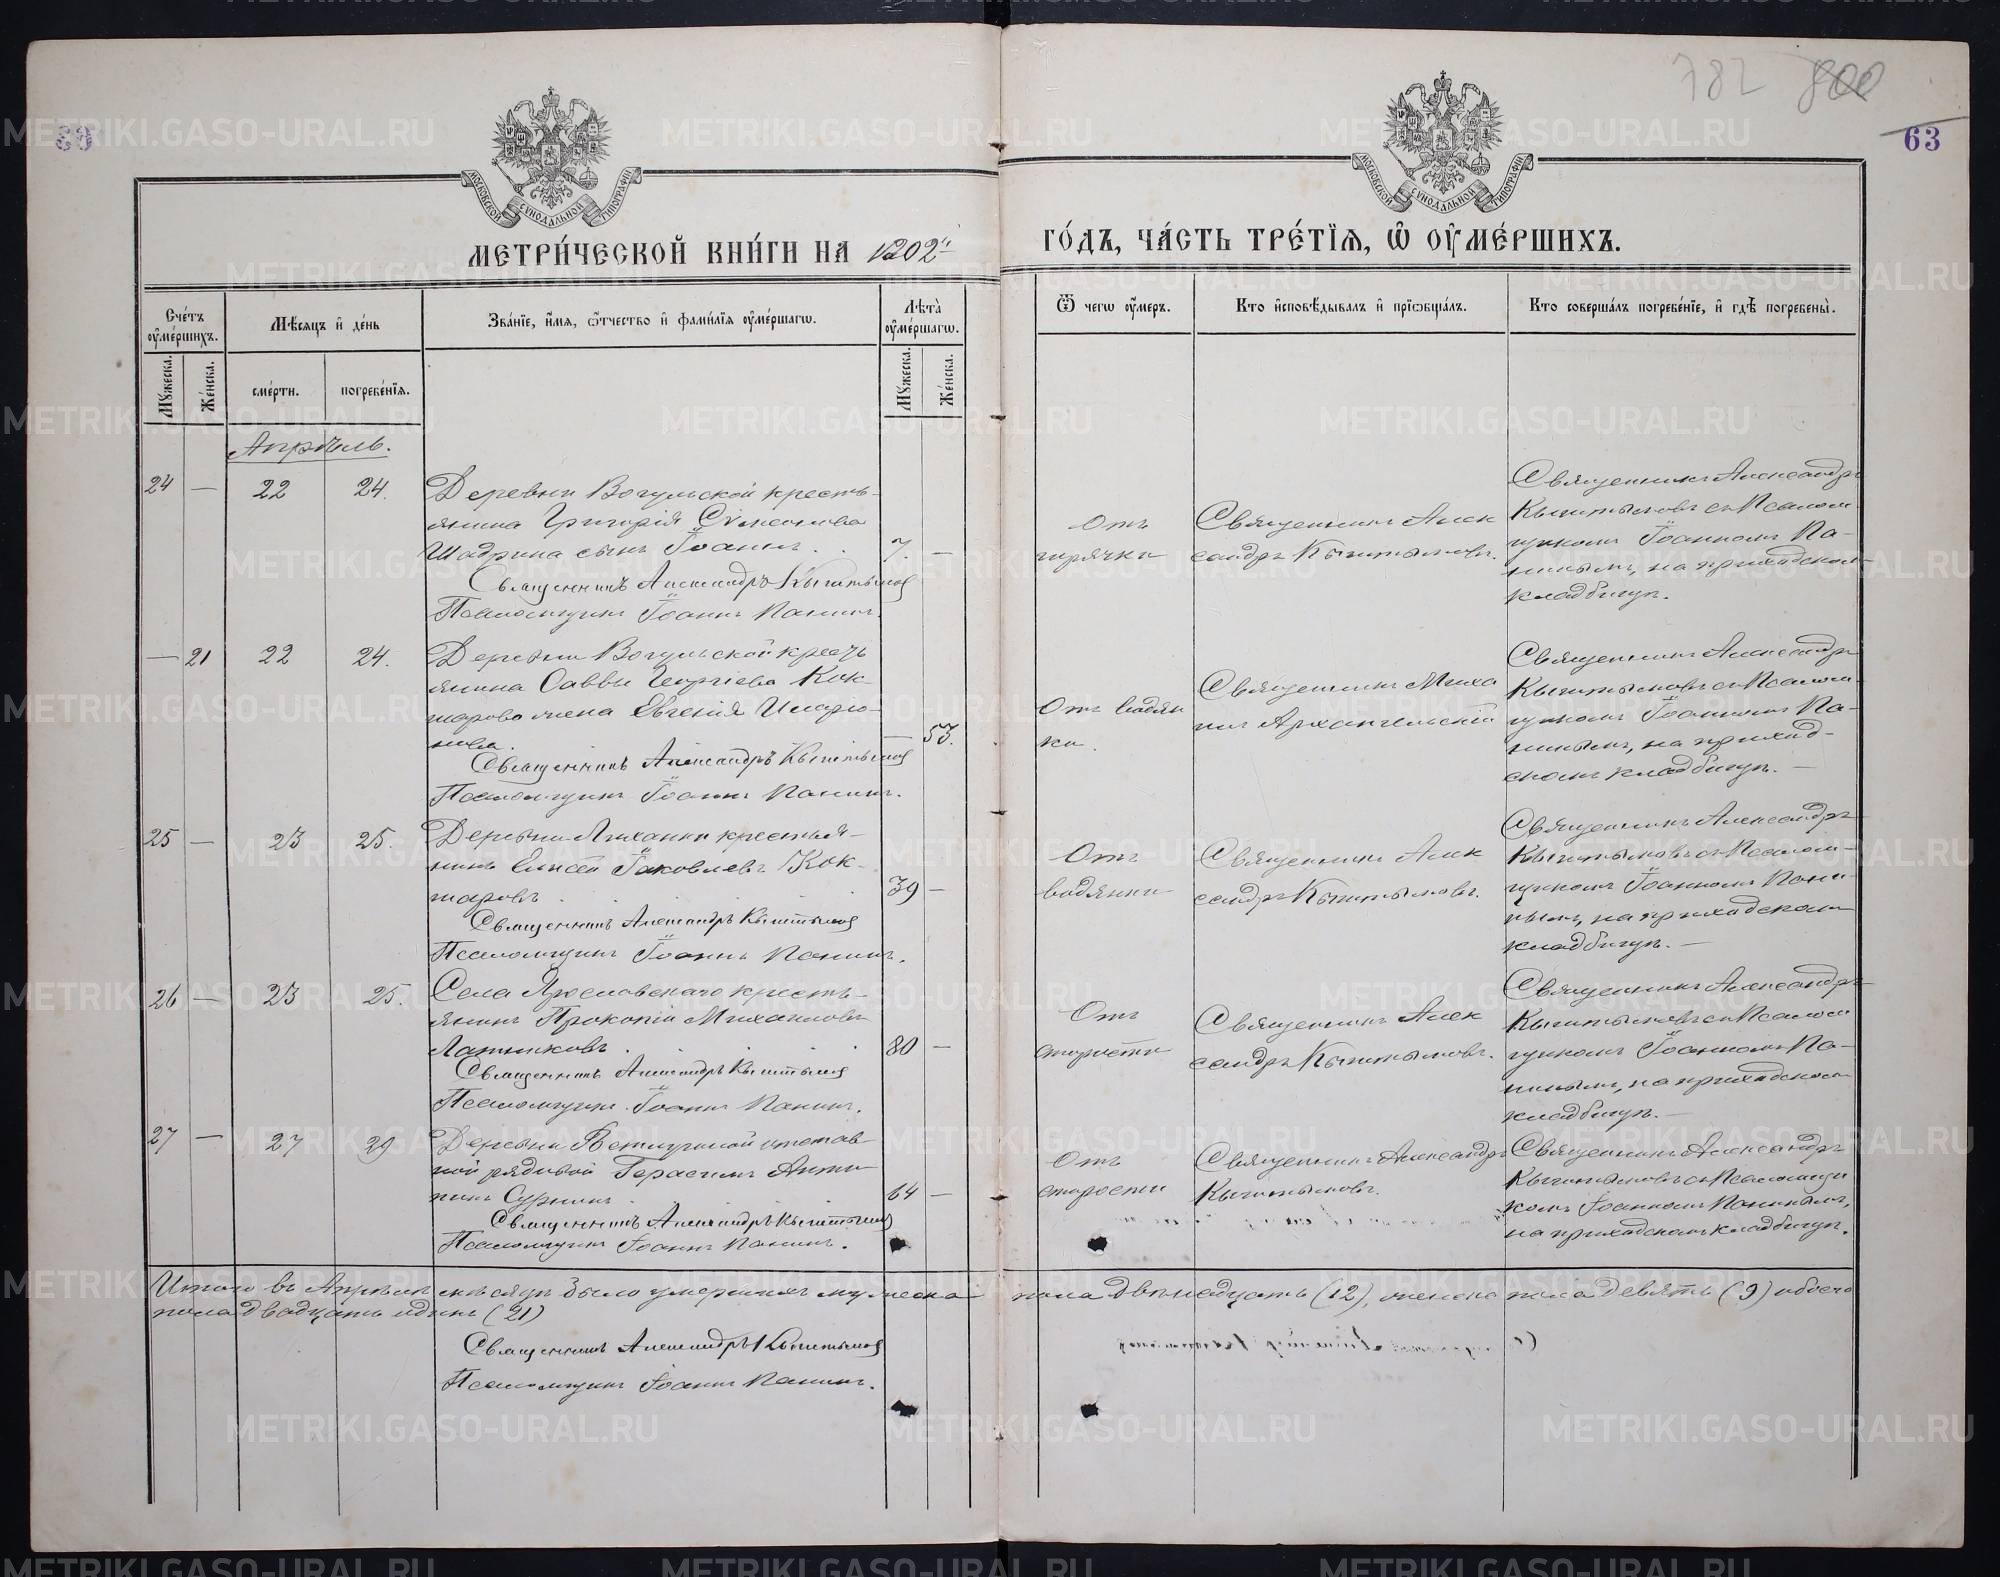 782 800
63
МОСКОВСКОЙ СѴНОДАЛЬНОЙ ТИПОГРАФІИ
МОСКОВСКОЙ СѴНОДАЛЬНОЙ ТИПОГРАФІИ
МЕТРИ́ЧЕСКОЙ КНИ́ГИ НА 1902 ГО́ДЪ, ЧА́СТЬ ТРЕ́ТІѦ, Ѡ ОУМЕ́РШИХЪ.
Сче́тъ оумершихъ.
Мѣсяцъ и де́нь
Зва́нїе, и́мя, ѻ҆́тчество и фами́лїя оуме́ршагѡ.
Лѣта̀ оуме́ршагѡ.
Ѿ чегѡ оу́меръ.
Кто̀ и҆сповѣ́дывалъ и҆ прїѡбща́лъ.
Кто̀ соверша́лъ погребе́нїе, и҆ гдѣ̀ погребены̀.
Мужеска.
Же́нска.
сме́рти.
погребе́нїя.
Мужеска.
Же́нска.
Апрѣль.
24 — 22 24.
Деревни Вогульской кресть-
янина Григорія Симеонова
Шадрина сынъ Іоаннъ . . 7. —
Священникъ Александръ Кыштымов
Псаломщикъ Іоаннъ Панинъ.
Отъ
горячки
Священникъ Алек
сандръ Кыштымовъ.
Священникъ Александръ
Кыштымовъ съ Псалом-
щикомъ Іоанномъ Па-
нинымъ, на приходскомъ
кладбищѣ.
— 21 22 24.
Деревни Вогульской кресть
янина Саввы Георгіева Кок-
шарова жена Евгенія Иларіо-
нова. — 53.
Священникъ Александръ Кыштымов
Псаломщикъ Іоаннъ Панинъ.
Отъ водян
ки.
Священникъ Миха
илъ Архангельскій
Священникъ Александръ
Кыштымовъ съ Псалом-
щикомъ Іоанномъ Па-
нинымъ, на приход-
скомъ кладбищѣ. —
25 — 23 25.
Деревни Луханки крестья-
нинъ Елисей Іаковлевъ Кок-
шаровъ . . . 39 —
Священникъ Александръ Кыштымов
Псаломщикъ Іоаннъ Панинъ.
Отъ
водянки
Священникъ Алек
сандръ Кыштымовъ.
Священникъ Александръ
Кыштымовъ съ Псалом-
щикомъ Іоанномъ Пани-
нымъ, на приходскомъ
кладбищѣ. —
26 — 23 25.
Села Ярославскаго кресть-
янинъ Прокопій Михаиловъ
Латниковъ . . . 80 —
Священникъ Александръ Кыштымов
Псаломщикъ Іоаннъ Панинъ.
Отъ
старости
Священникъ Алек
сандръ Кыштымовъ.
Священникъ Александръ
Кыштымовъ съ Псалом
щикомъ Іоанномъ Па-
нинымъ, на приходскомъ
кладбищѣ. —
27 — 27 29
Деревни отстав-
ной рядовой Герасимъ Анти
пинъ Суринъ . . 64 —
Священникъ Александръ Кыштымов
Псаломщикъ Іоаннъ Панинъ.
Отъ
старости
Священникъ Александръ
Кыштымовъ.
Священникъ Александръ
Кыштымовъ съ Псаломщи
комъ Іоанномъ Панинымъ,
на приходскомъ кладбищѣ.
Итого въ Апрѣлѣ мѣсяцѣ было умершихъ мужеска пола двѣнадцать (12), женска пола девять (9) обоего
пола двадцать одинъ (21)
Священникъ Александръ Кыштымов
Псаломщикъ Іоаннъ Панинъ.
METRIKI.GASO-URAL.RU